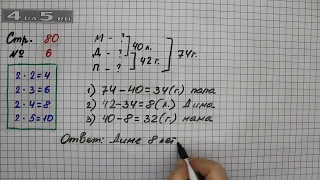 4fu5.ru
Стр. 80
№ 6
2 · 2 = 4
2 · 3 = 6
2 · 4 = 8
2 · 5 = 10
М - ?
Д - ?
П - ?
40 л.
42 г.
74 г.
1) 74 - 40 = 34 (г.) папа
2) 42 - 34 = 8 (л.) Дима
3) 40 - 8 = 32 (г.) мама
Ответ: Диме 8 лет